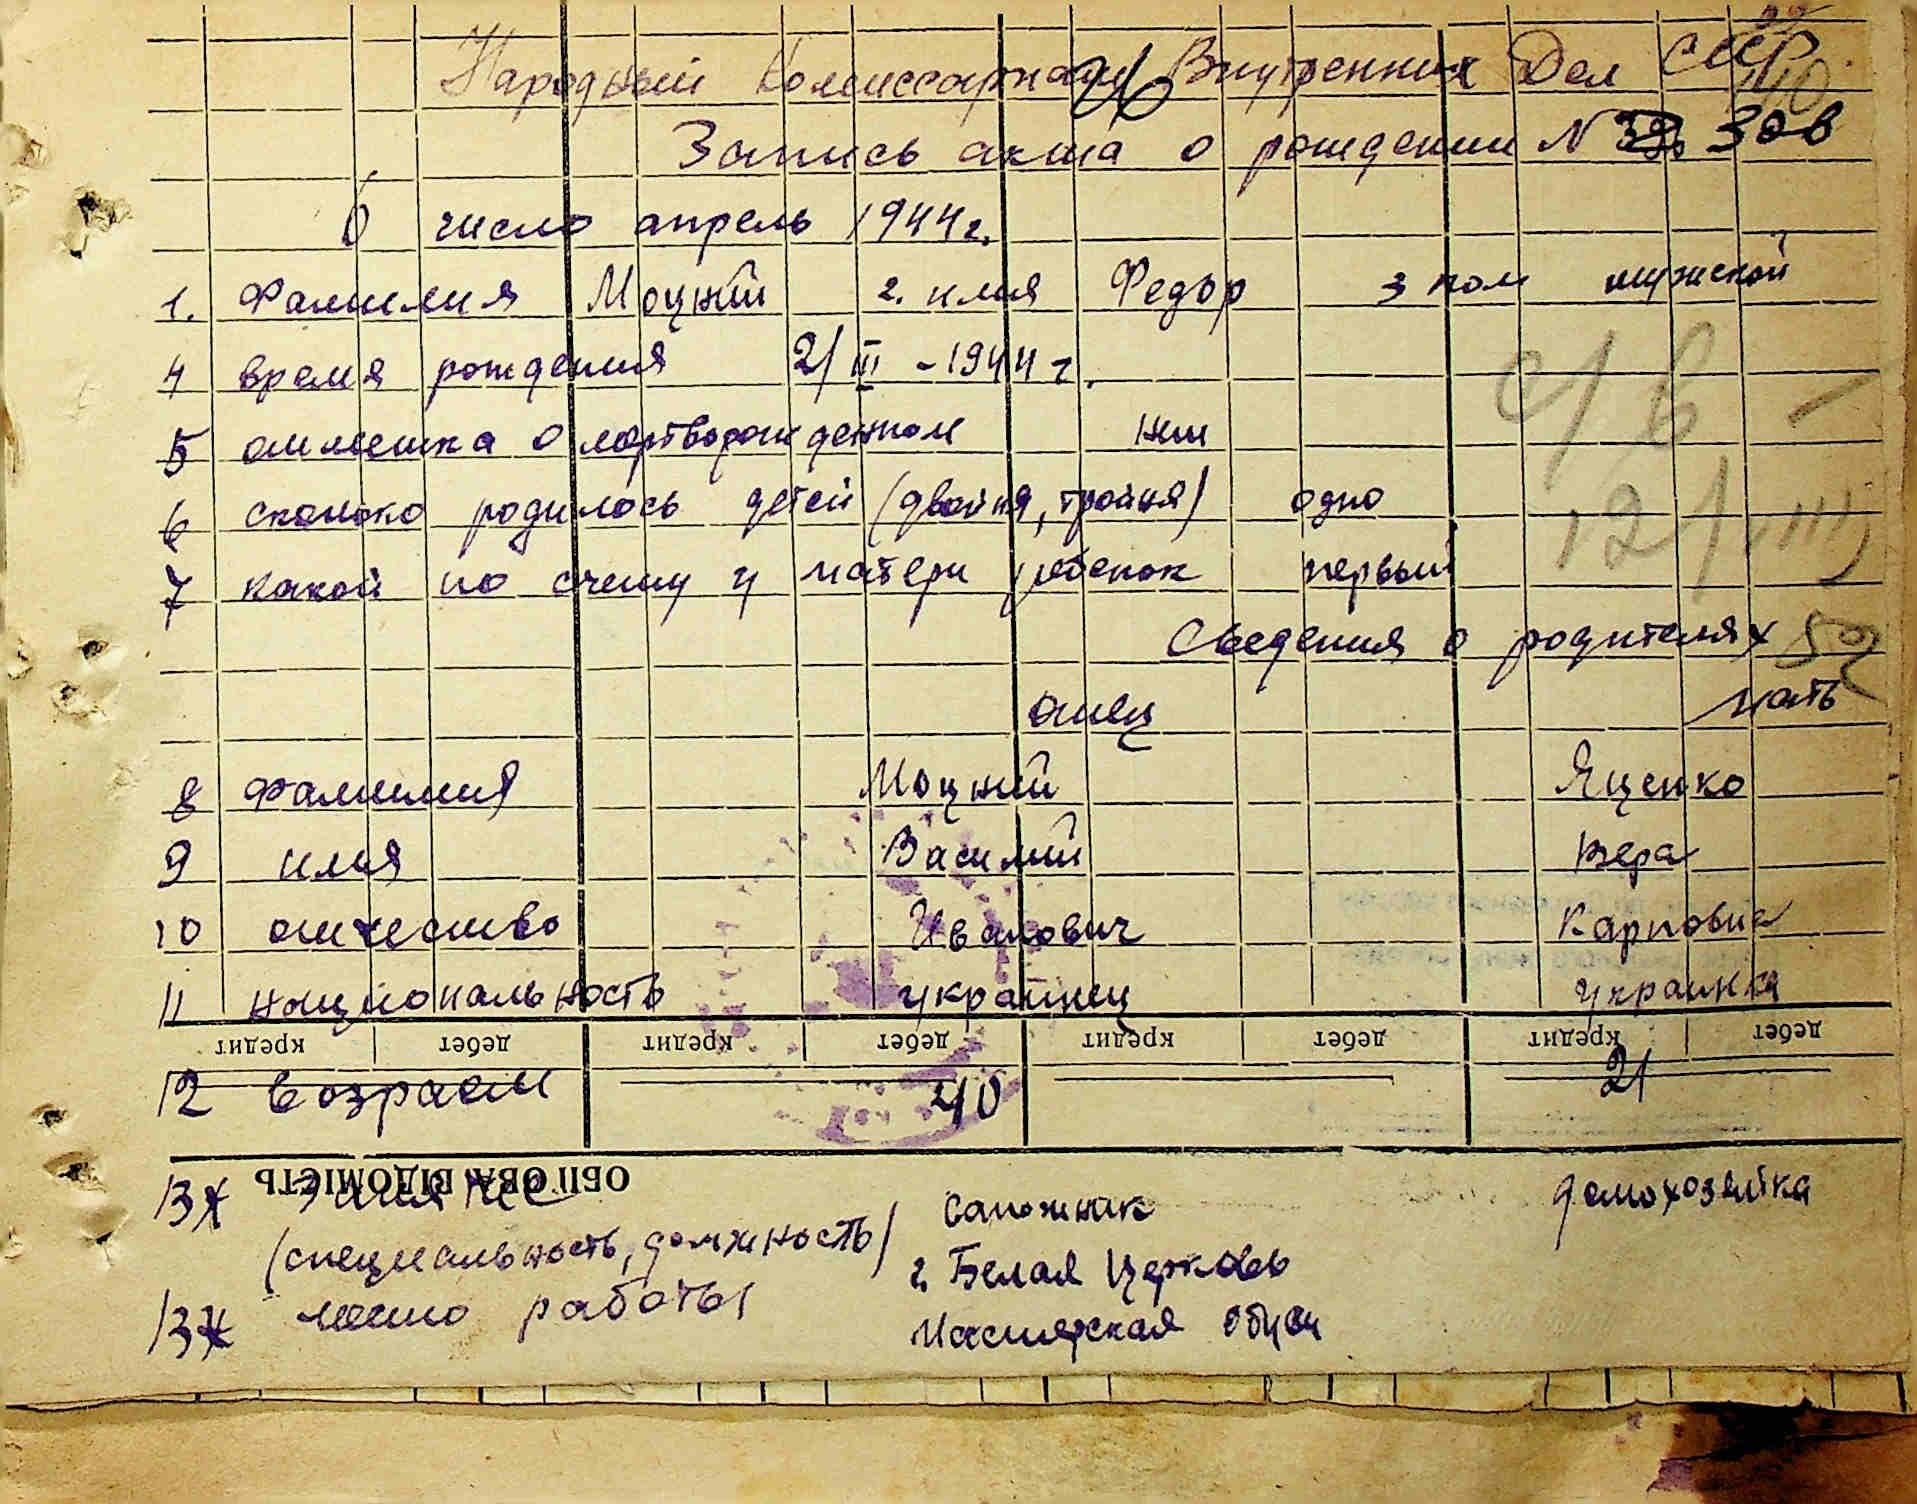 Народный Комиссариат Внутренних Дел СССР
Запись акта о рождении N 306
6 число апрель 1944г.
1. Фамилия Моцкий 2. имя Федор 3 пол мужской
4 время рождения 21/III - 1944 г.
5 отметка о мертворожденном нет
6 сколько родилось детей (двойня, тройня) одно
7 какой по счету у матери ребенок первый
Сведения о родителях
отец мать
8 фамилия Моцкий Яценко
9 имя Василий Вера
10 отчество Иванович Карповна
11 национальность украинец украинка
кредит дебет кредит дебет кредит дебет кредит дебет
12 возраст 40 21
ОБІГОВА ВІДОМІСТЬ
13 занятие сапожник домохозяйка
(специальность, должность)
г. Белая Церковь
13 место работы
Мастерская обуви